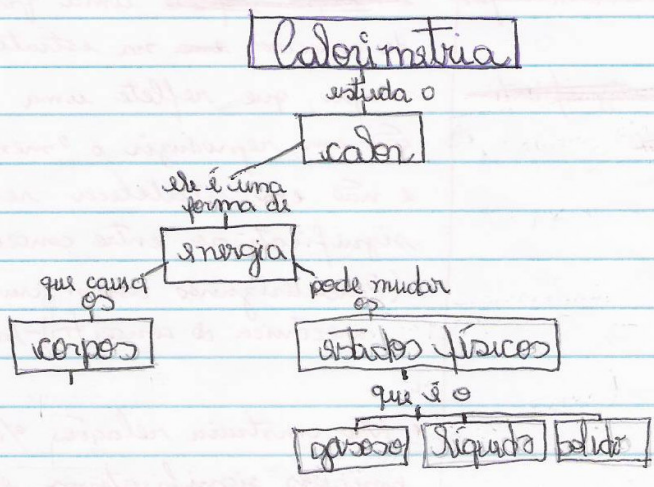 Calorimetria
estuda o
calor
ele é uma
forma de
energia
que causa
os
corpos
pode mudar
os
estados físicos
que é o
gasoso líquido solido